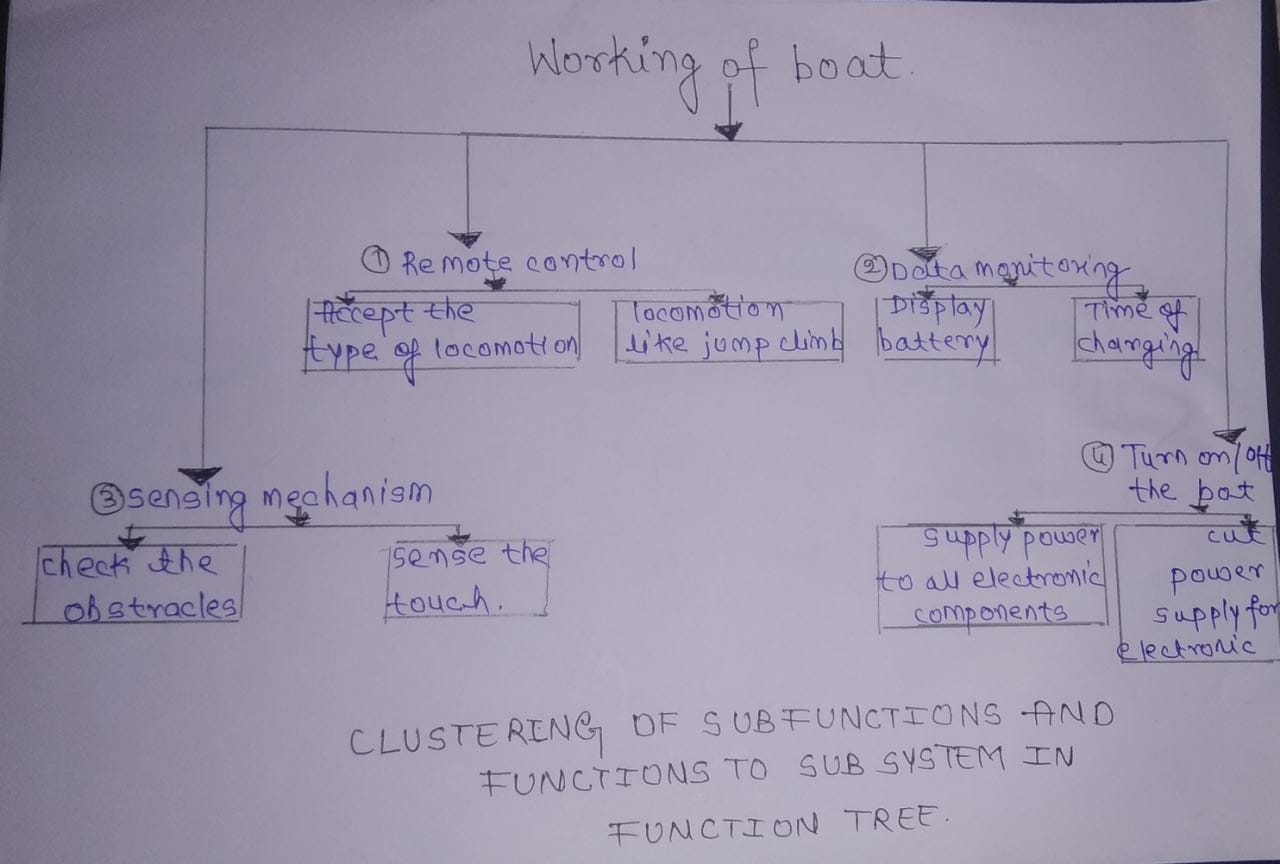 Working of boat.
① Remote control
Accept the
type of locomotion
locomotion
like jump climb
② Data monitoring
Display
battery
Time of
charging
③ sensing mechanism
check the
obstracles
sense the
touch.
④ Turn on/off
the bot
supply power
to all electronic
components
cut
power
supply for
electronic
CLUSTERING OF SUBFUNCTIONS AND
FUNCTIONS TO SUB SYSTEM IN
FUNCTION TREE.